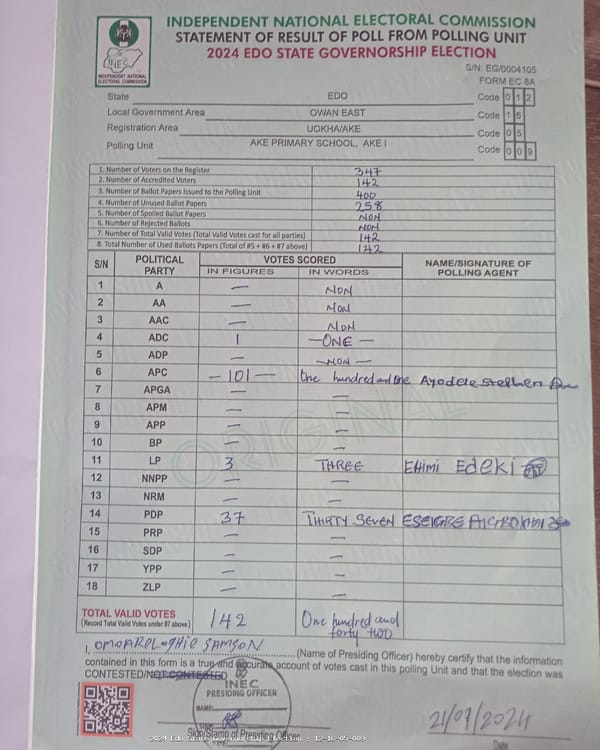 INDEPENDENT NATIONAL ELECTORAL COMMISSION
STATEMENT OF RESULT OF POLL FROM POLLING UNIT
2024 EDO STATE GOVERNORSHIP ELECTION
INEC
INDEPENDENT NATIONAL ELECTORAL COMMISSION
S/N: EG/0004105
FORM EC 8A
State EDO Code 0 1 2
Local Government Area OWAN EAST Code 1 6
Registration Area UOKHA/AKE Code 0 5
Polling Unit AKE PRIMARY SCHOOL, AKE I Code 0 0 9
1. Number of Voters on the Register 347
2. Number of Accredited Voters 142
3. Number of Ballot Papers Issued to the Polling Unit 400
4. Number of Unused Ballot Papers 258
5. Number of Spoiled Ballot Papers NON
6. Number of Rejected Ballots NON
7. Number of Total Valid Votes (Total Valid Votes cast for all parties) 142
8. Total Number of Used Ballots Papers (Total of #5 + #6 + #7 above) 142
S/N POLITICAL PARTY VOTES SCORED NAME/SIGNATURE OF POLLING AGENT
IN FIGURES IN WORDS
1 A — NON
2 AA — Non
3 AAC — NON
4 ADC 1 —ONE—
5 ADP — —NON—
6 APC —101— One hundred and One Ayodele Stephen
7 APGA — —
8 APM — —
9 APP — —
10 BP — —
11 LP 3 THREE Ehimi Edeki
12 NNPP — —
13 NRM — —
14 PDP 37 THIRTY SEVEN
15 PRP — —
16 SDP — —
17 YPP — —
18 ZLP — —
TOTAL VALID VOTES 142 One hundred and
(Record Total Valid Votes under #7 above) forty two
I, OMOARELOGHIE SAMSON (Name of Presiding Officer) hereby certify that the information
contained in this form is a true and accurate account of votes cast in this polling Unit and that the election was
CONTESTED/NOT CONTESTED
INEC
PRESIDING OFFICER
NAME:
Sign/Stamp of Presiding Officer
21/09/2024
Date
2024 Edo State Governorship Election : 12-16-05-009
ORIGINAL